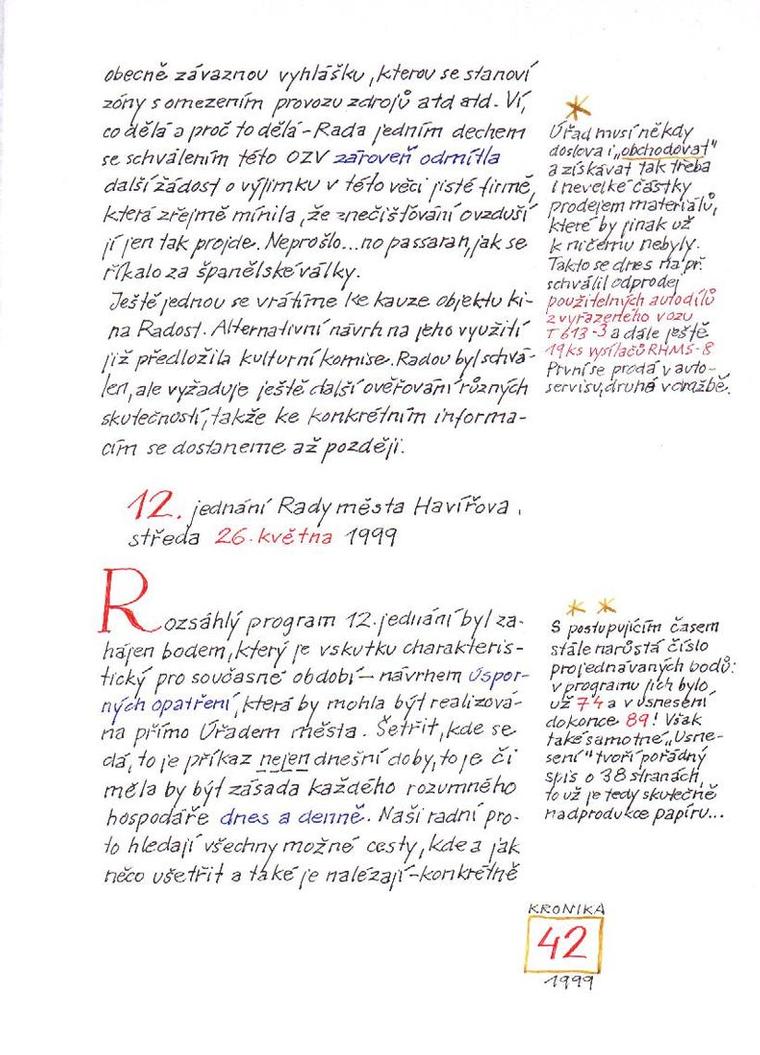 obecně závaznou vyhlášku, kterou se stanoví
zóny s omezením provozu zdrojů atd atd. Ví,
co dělá a proč to dělá - Rada jedním dechem
se schválením této OZV zároveň odmítla
další žádost o výjimku v této věci jisté firmě,
která zřejmě mínila, že znečišťování ovzduší
jí jen tak projde. Neprošlo... no passaran, jak se
říkalo za španělské války.
Ještě jednou se vrátíme ke kauze objektu ki-
na Radost. Alternativní návrh na jeho využití
již předložila kulturní komise. Radou byl schvá-
len, ale vyžaduje ještě další ověřování různých
skutečností, takže ke konkrétním informa-
cím se dostaneme až později.
*
Úřad musí někdy
doslova i „obchodovat"
a získávat tak třeba
i nevelké částky
prodejem materiálů,
které by jinak už
k ničemu nebyly.
Takto se dnes např.
schválil odprodej
použitelných autodílů
z vyřazeného vozu
T 613-3 a dále ještě
19 ks vysílačů RHMS-8
První se prodá v auto-
servisu, druhé v dražbě.
12. jednání Rady města Havířova,
středa 26. května 1999
Rozsáhlý program 12. jednání byl za-
hájen bodem, který je vskutku charakteris-
tický pro současné období - návrhem úspor-
ných opatření, která by mohla být realizová-
na přímo Úřadem města. Šetřit, kde se
dá, to je příkaz nejen dnešní doby, to je či
měla by být zásada každého rozumného
hospodáře dnes a denně. Naši radní pro-
to hledají všechny možné cesty, kde a jak
něco ušetřit a také je nalézají - konkrétně
* *
S postupujícím časem
stále narůstá číslo
projednávaných bodů:
v programu jich bylo
už 74 a v usnesení
dokonce 89! Však
také samotné „Usne-
sení" tvoří pořádný
spis o 38 stranách,
to už je tedy skutečně
nadprodukce papíru...
KRONIKA
42
1999